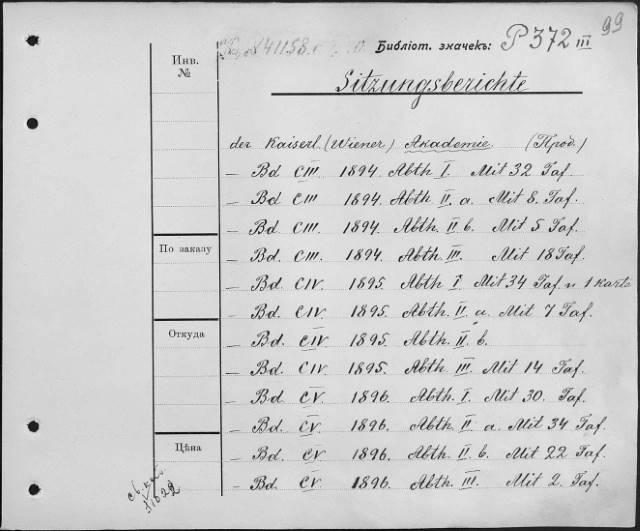 99
Библіот. значекъ: P 372 III
Инв.
№
Sitzungsberichte
der Kaiserl. (Wiener) Akademie (Прод.)
— Bd CIII 1894. Abth I. Mit 32 Taf.
— Bd. CIII 1894. Abth II. a. Mit 8. Taf.
— Bd. CIII. 1894. Abth. II b. Mit 5 Taf.
По заказу
— Bd. CIII. 1894. Abth. III. Mit 18 Taf.
— Bd. CIV. 1895. Abth I. Mit 34 Taf. u 1 Karte
— Bd. CIV. 1895. Abth II. a. Mit 7 Taf.
Откуда
— Bd. CIV 1895. Abth. II. b.
— Bd. CIV. 1895. Abth. III. Mit 14 Taf.
— Bd. CV. 1896. Abth. I. Mit 30. Taf.
— Bd. CV. 1896. Abth. II. a. Mit 34 Taf.
Цѣна
— Bd. CV 1896. Abth. II. b. Mit 22 Taf.
— Bd. CV. 1896. Abth. III. Mit 2. Taf.